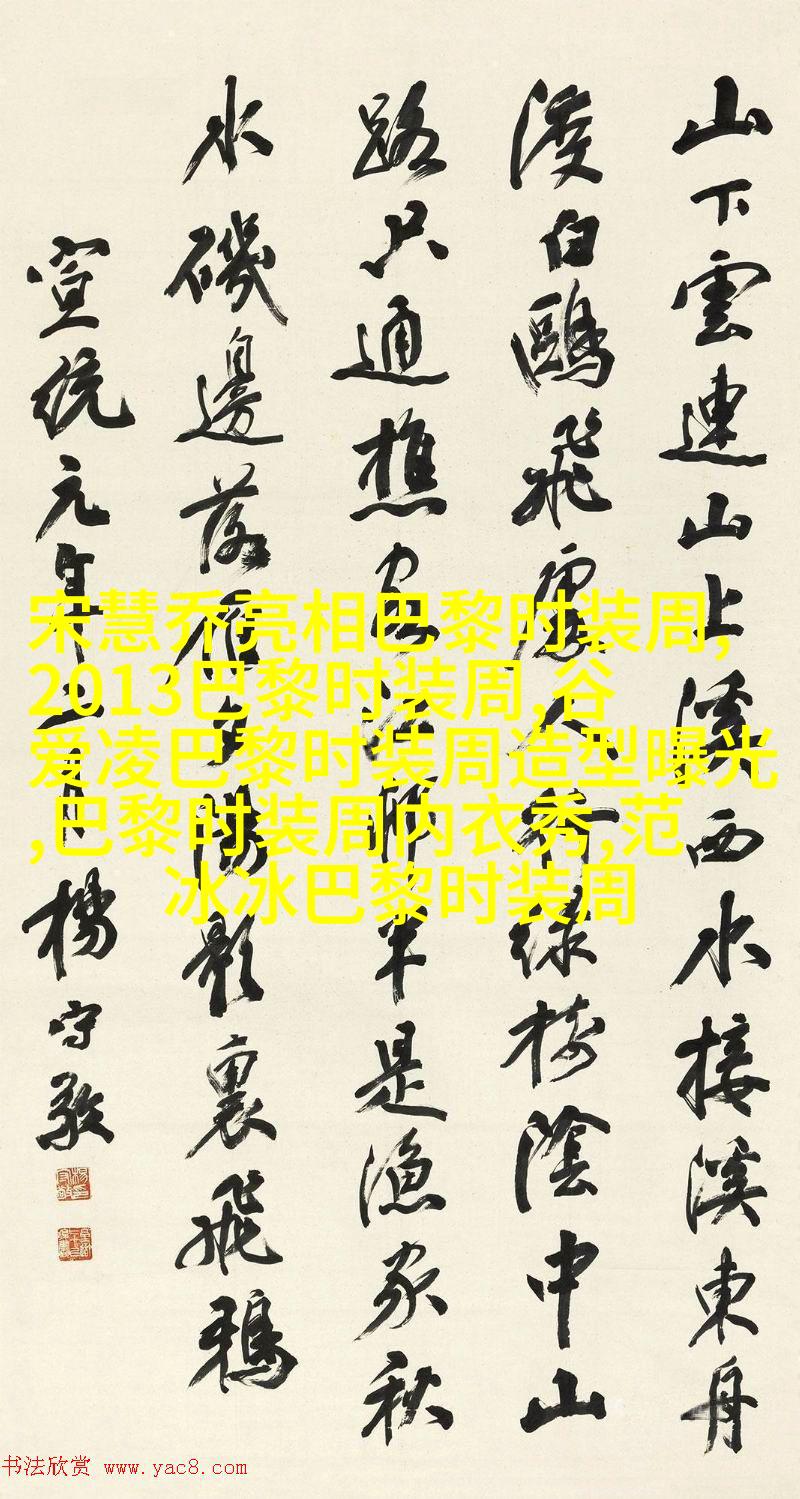 山下雲連山上溪西水接溪東舟
渡白鷗飛處人行綠樹陰中山
路只通樵客江邨半是漁家秋
水磯邊落雁夕陽影裏飛鴉
宣統元年二月楊守敬
宋慧乔亮相巴黎时装周,
2013巴黎时装周,谷
爱凌巴黎时装周造型曝光
,巴黎时装周内衣秀,范
冰冰巴黎时装周
书法欣赏 www.yac8.com